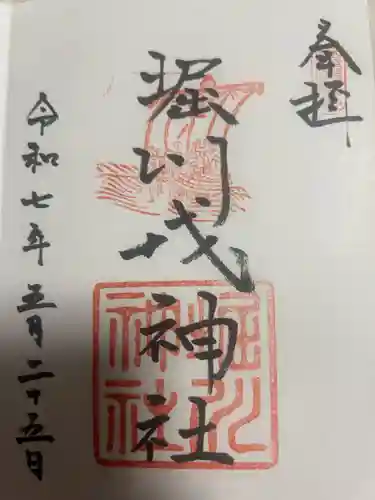 奉拝
堀川戎神社
令和七年五月二十五日
堀川
神社